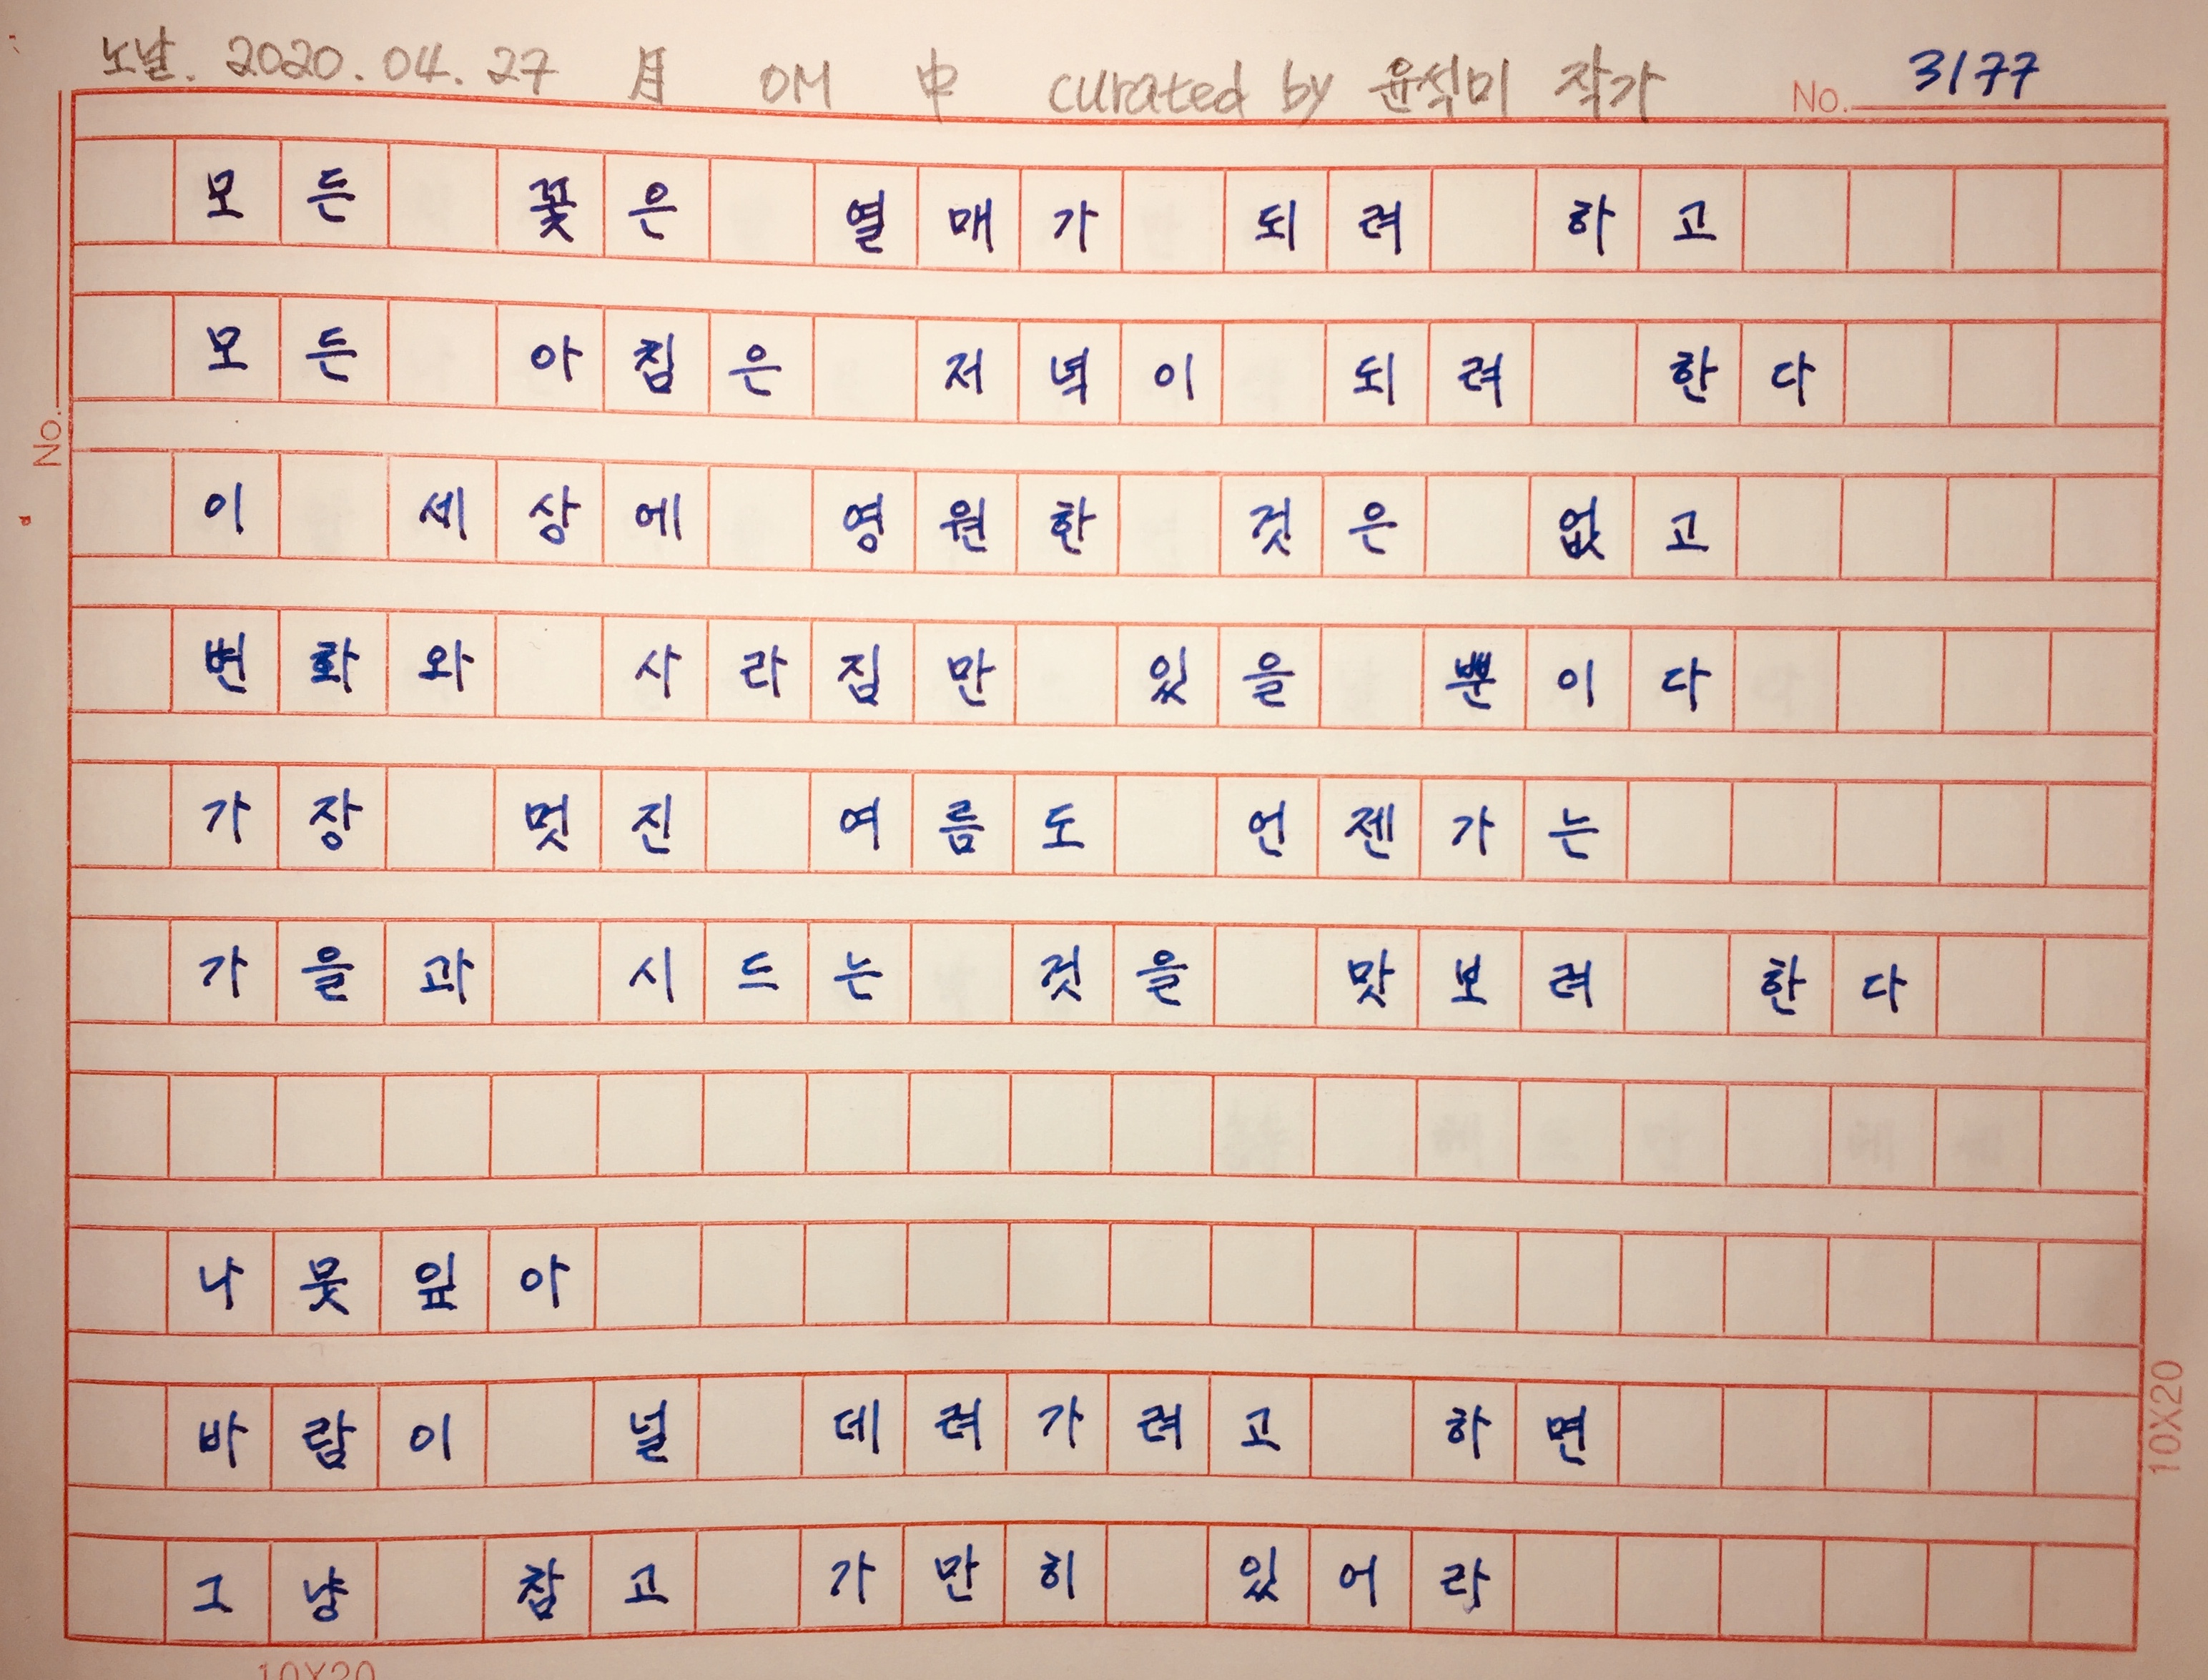 노날. 2020.04.27 月 OM 中 curated by 윤석미 작가 No. 3177
모든 꽃은 열매가 되려 하고
모든 아침은 저녁이 되려 한다
No.
이 세상에 영원한 것은 없고
변화와 사라짐만 있을 뿐이다
가장 멋진 여름도 언젠가는
가을과 시드는 것을 맛보려 한다
나뭇잎아
바람이 널 데려가려고 하면
그냥 참고 가만히 있어라
10X20
10X20